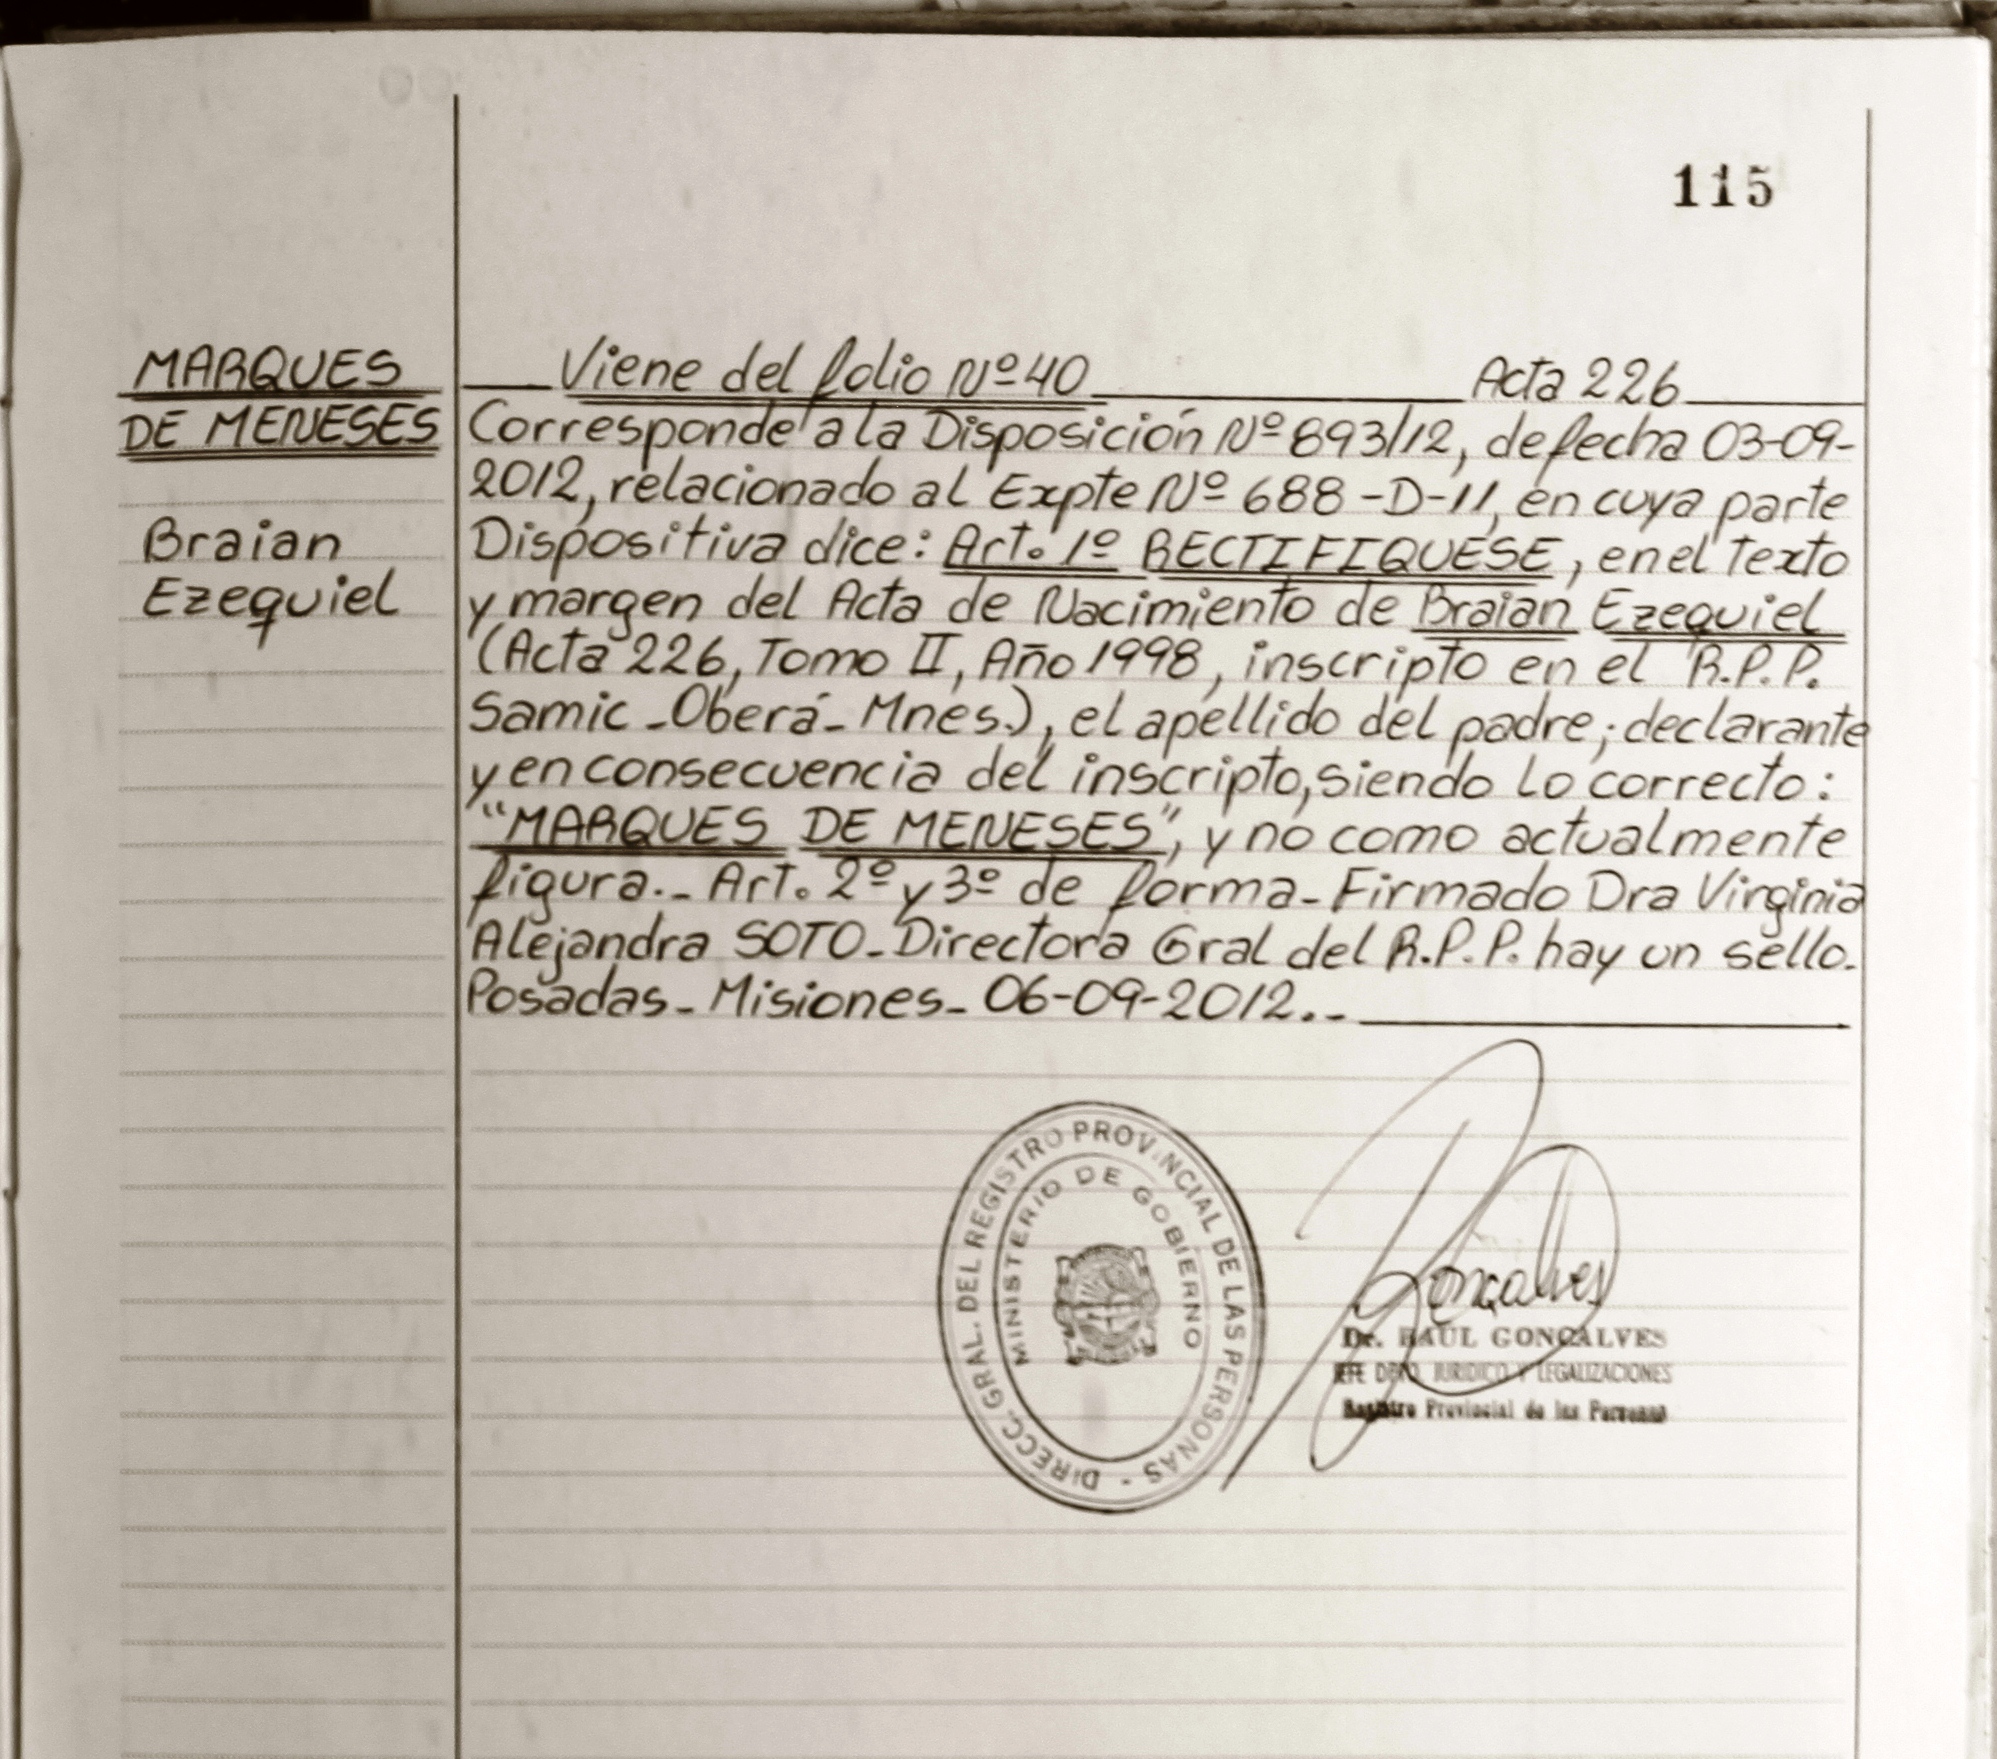 115
MARQUES
DE MENESES
Braian
Ezequiel
Viene del folio Nº 40 Acta 226
Corresponde a la Disposición Nº 893/12, de fecha 03-09-
2012, relacionado al Expte Nº 688-D-11, en cuya parte
Dispositiva dice: Art. 1º RECTIFIQUESE, en el Texto
y margen del Acta de Nacimiento de Braian Ezequiel
(Acta 226, Tomo II, Año 1998, inscripto en el R.P.P.
Samic - Oberá - Mnes.), el apellido del padre; declarante
y en consecuencia del inscripto, siendo lo correcto:
"MARQUES DE MENESES", y no como actualmente
figura.- Art. 2º y 3º de forma - Firmado Dra Virginia
Alejandra SOTO - Directora Gral del R.P.P. hay un sello.
Posadas - Misiones - 06-09-2012.-
DIRECC. GRAL. DEL REGISTRO PROVINCIAL DE LAS PERSONAS -
MINISTERIO DE GOBIERNO
Gonçalves
Dr. RAUL GONCALVES
JEFE DPTO. JURIDICO Y LEGALIZACIONES
Registro Provincial de las Personas